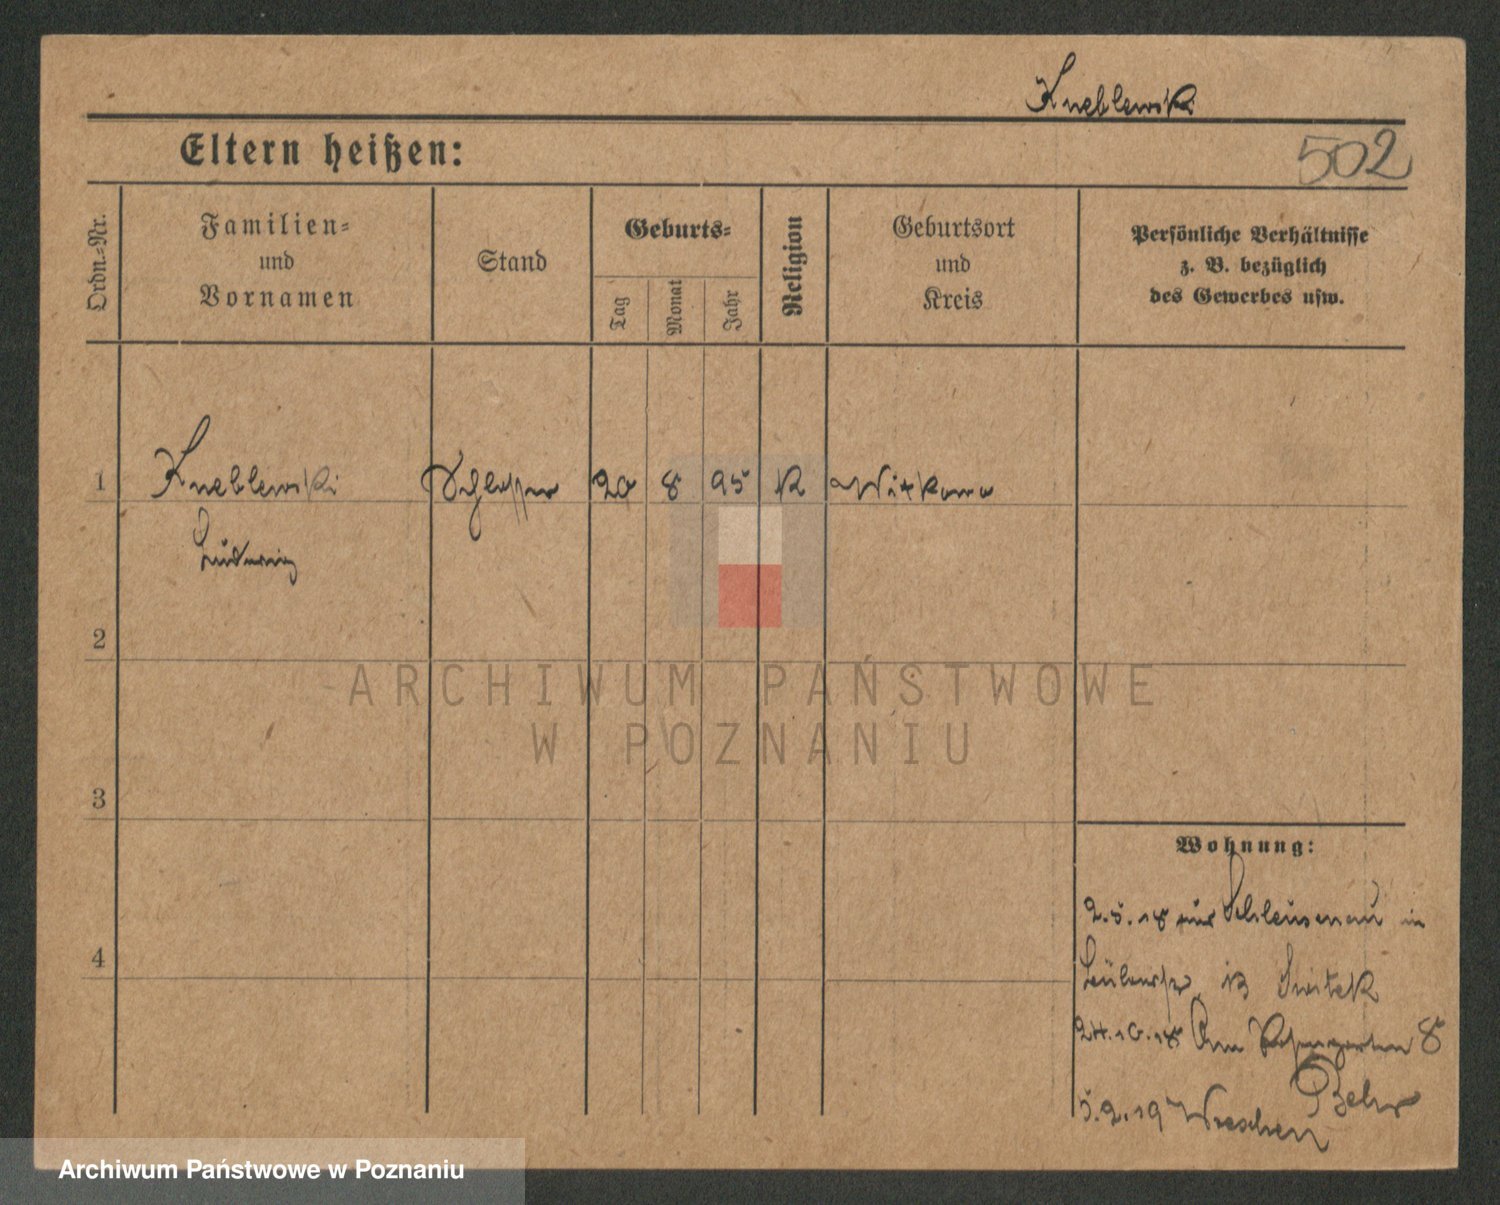 Kneblewski
Eltern heißen:
502
Ordn.-Nr.
Familien-
und
Vornamen
Stand
Geburts-
Tag
Monat
Jahr
Religion
Geburtsort
und
Kreis
Persönliche Verhältnisse
z. B. bezüglich
des Gewerbes usw.
1 Kneblewski Schlosser 20 8 95 K Witkowo
Ludwig
2
3
4
Wohnung:
2.5.18 aus Schleusenau in
13 Switek
24.10.18 Am 8
Behr
5.2.19 Wreschen
ARCHIWUM PAŃSTWOWE
W POZNANIU
Archiwum Państwowe w Poznaniu